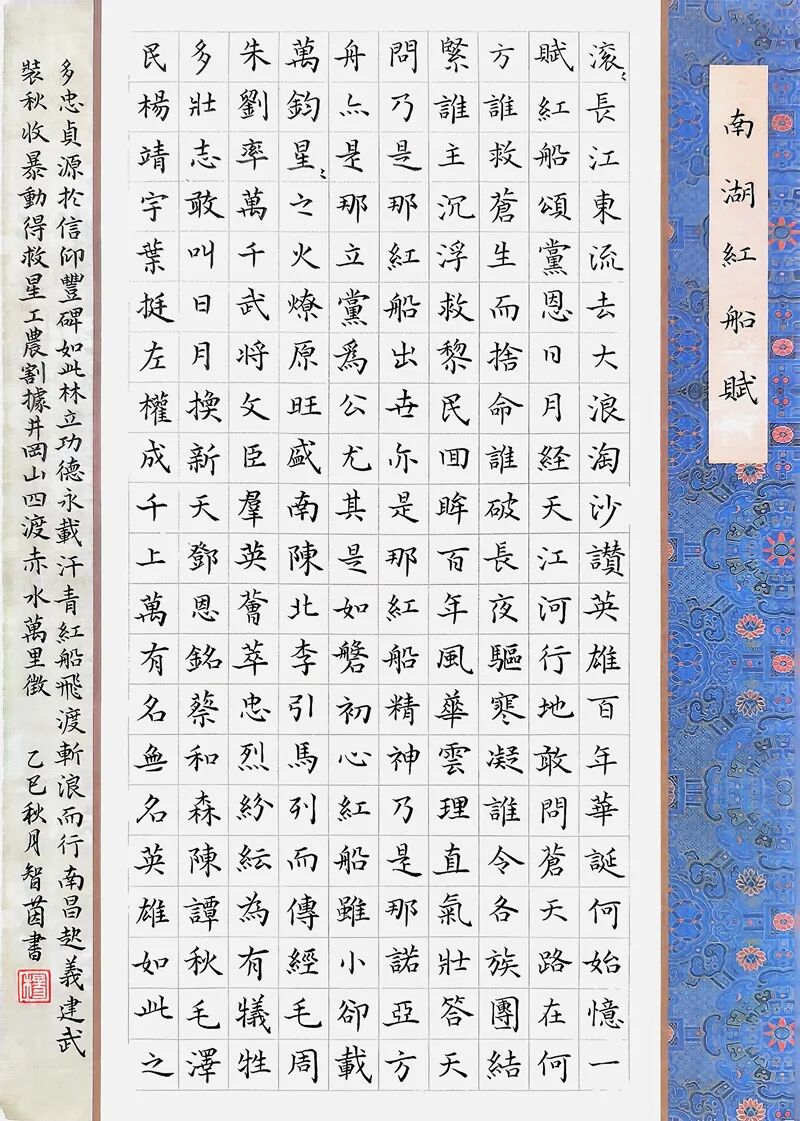 南湖紅船賦
滚〻長江東流去大浪淘沙讃英雄百年華誕何始憶一
賦紅船頌黨恩日月経天江河行地敢問蒼天路在何
方誰救蒼生而捨命誰破長夜驅寒凝誰令各族團結
緊誰主沉浮救黎民回眸百年風華雲理直氣壯答天
問乃是那紅船出世亦是那紅船精神乃是那諾亞方
舟亦是那立黨爲公尤其是如磐初心紅船雖小卻載
萬鈞星〻之火燎原旺盛南陳北李引馬列而傳經毛周
朱劉率萬千武將文臣羣英薈萃忠烈紛紜為有犠牲
多壯志敢叫日月換新天鄧恩銘蔡和森陳譚秋毛澤
民楊靖宇葉挺左權成千上萬有名無名英雄如此之
多忠貞源於信仰豐碑如此林立功德永載汗青紅船飛渡斬浪而行南昌起義建武
裝秋收暴動得救星工農割據井岡山四渡赤水萬里徵 乙巳秋月智茵書